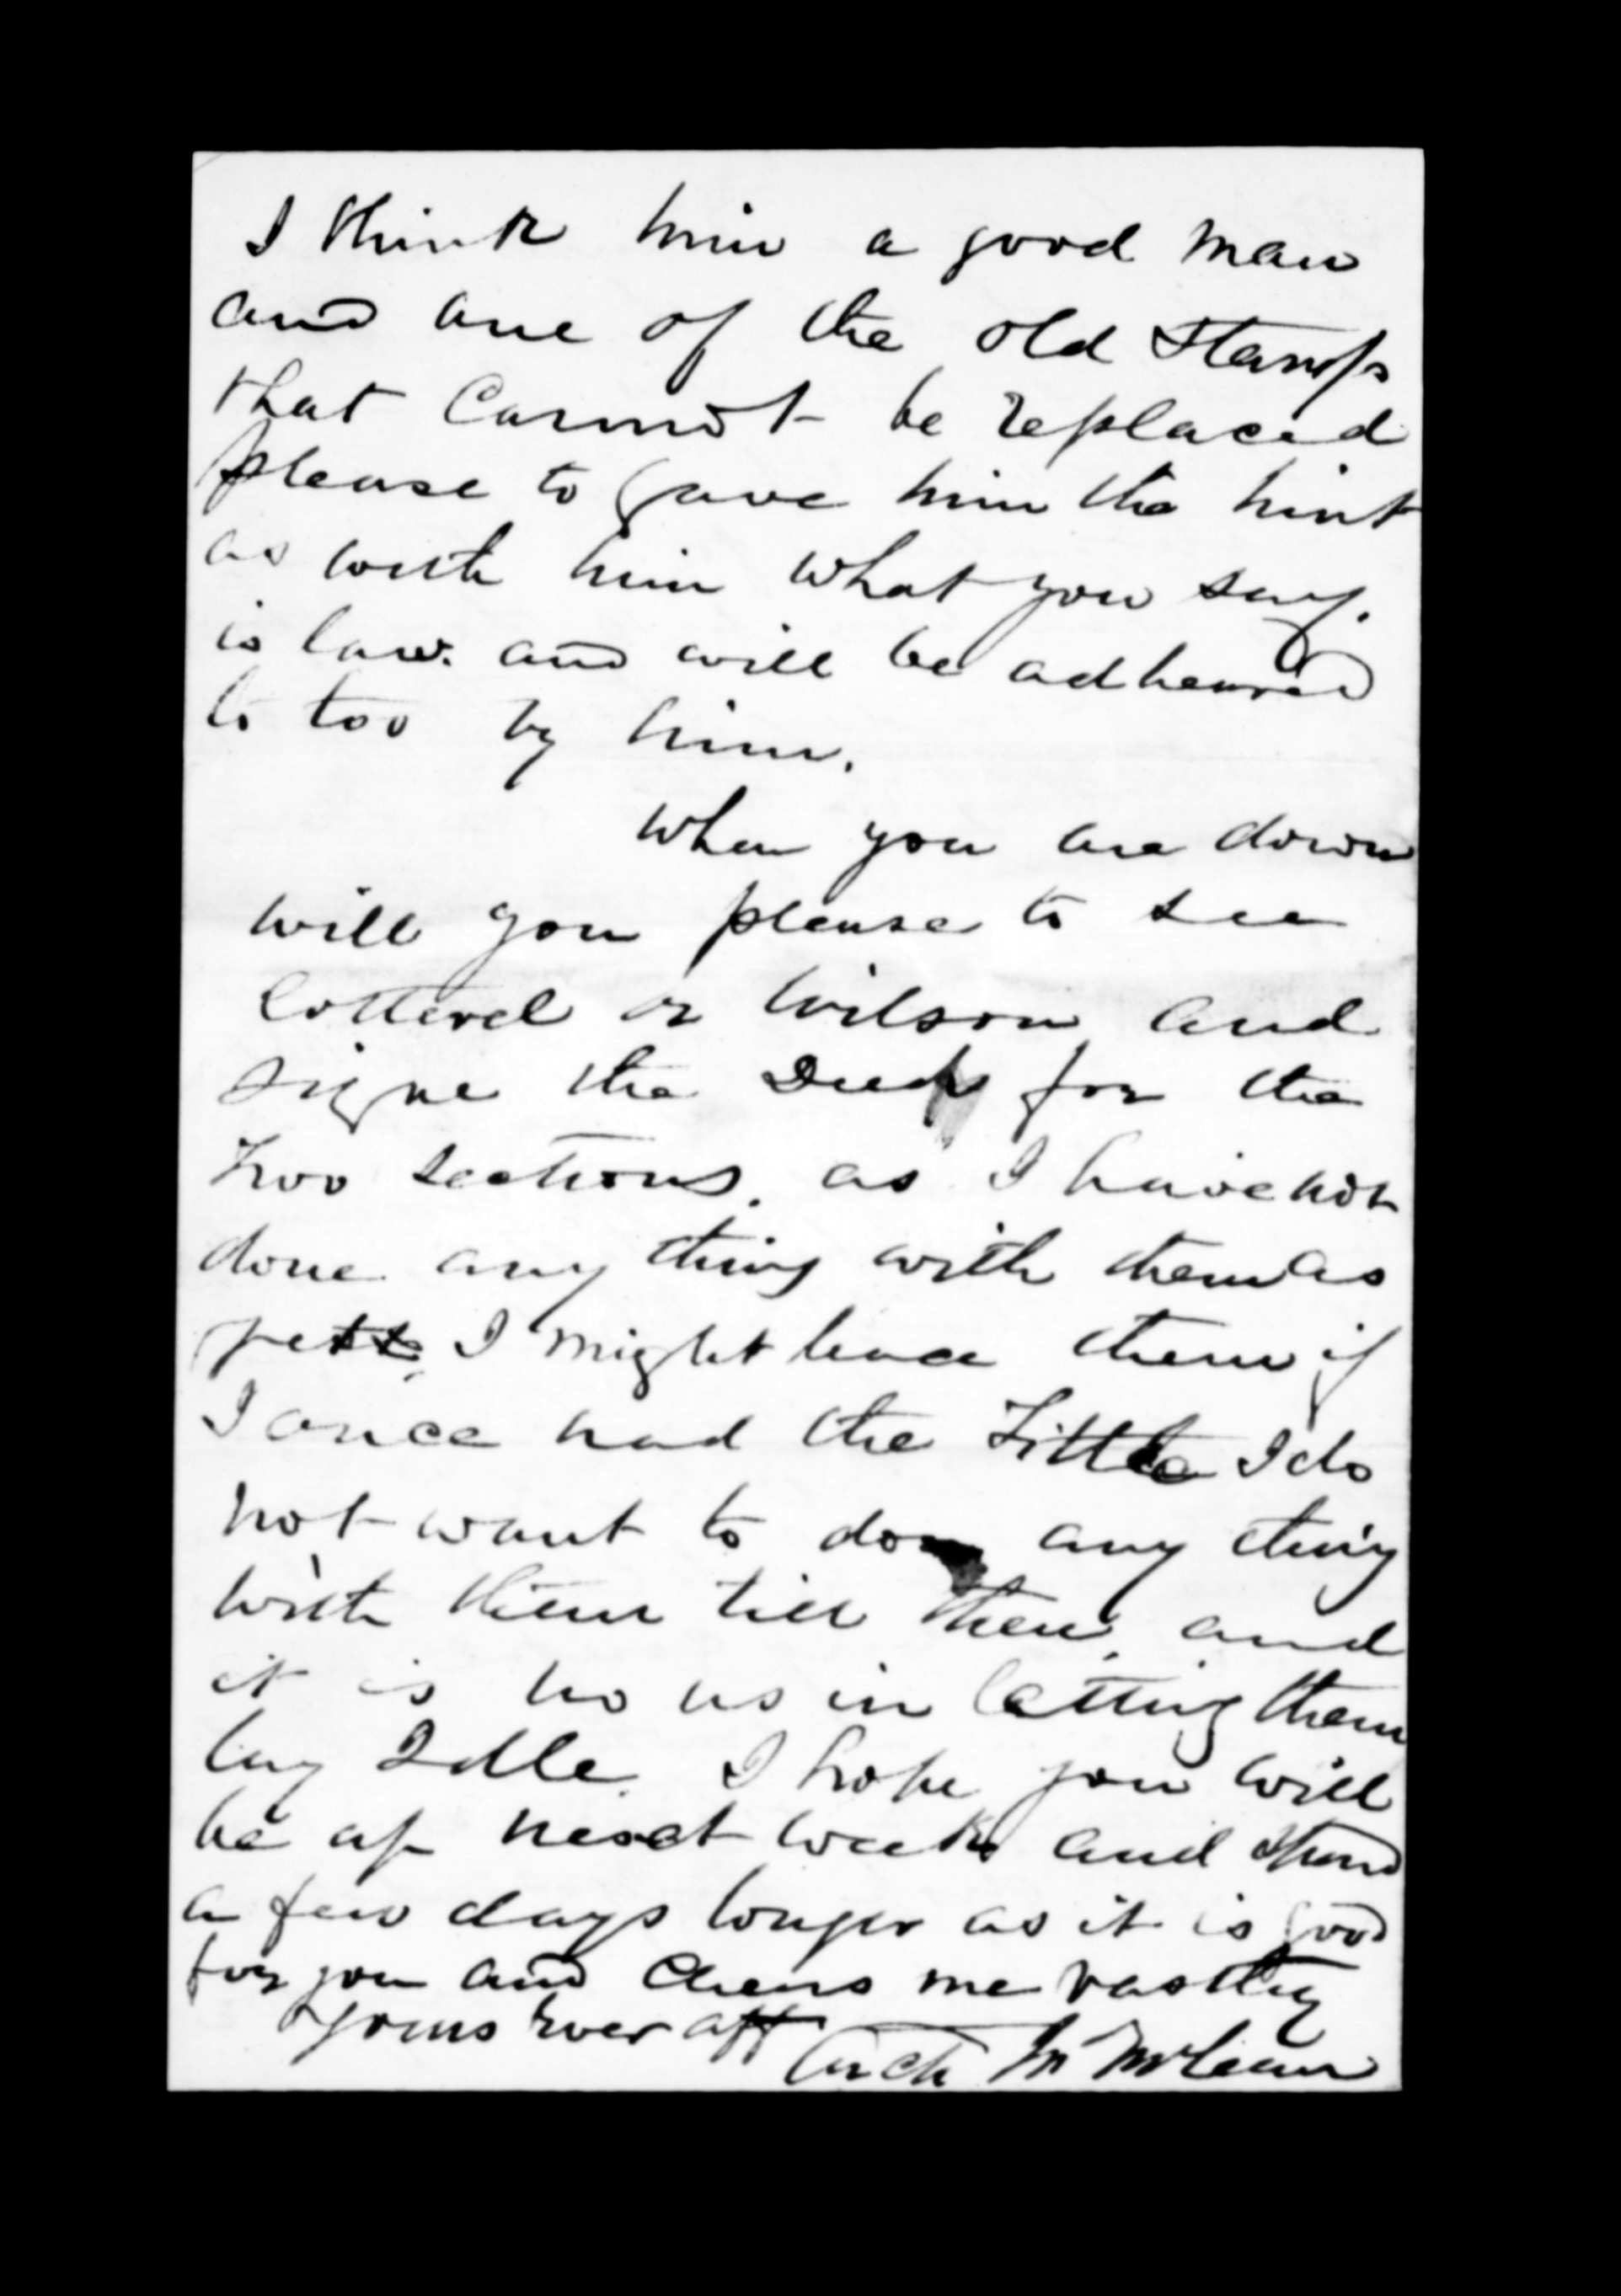 I think him a good man
and one of the old Stamps
that Cannot be replaced
please to gave him the hint
as with him what you say.
is law. and will be adheured
to too by him.
When you are down
will you please to see
Cotterel or Wilson and
signe the Deeds for the
two sections. as I have not
done any thing with them as
yett, I might leace them if
I once had the Tittle I do
not want to do any thing
with them till then, and
it is no us in letting them
lay Idle. I hope you will
be up next week and spend
a few days longer as it is good
for you and Chears me vastley
Yours Ever aff
Arch Jn McLean